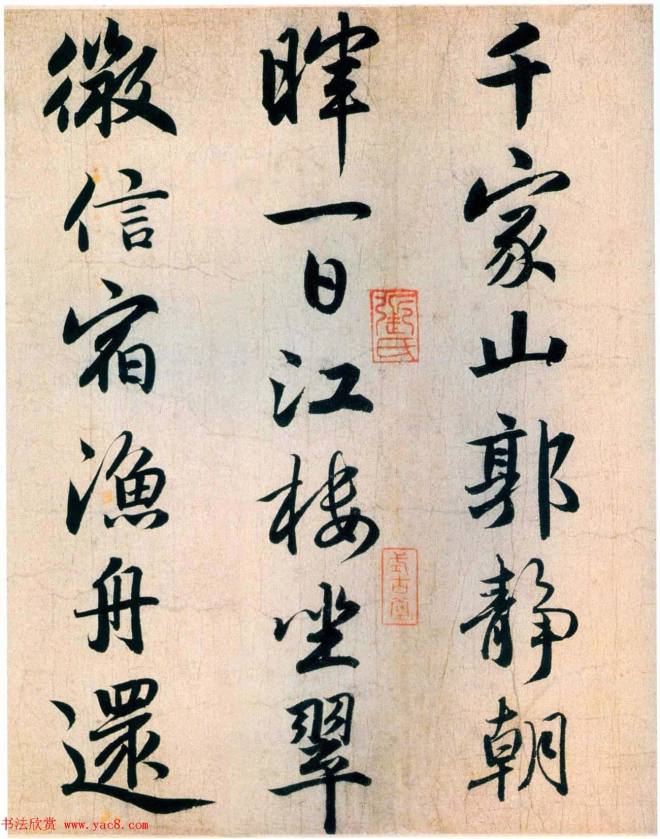 千家山郭靜朝
暉一日江樓坐翠
微信宿漁舟還
式古堂
书法欣赏 www.yac8.com